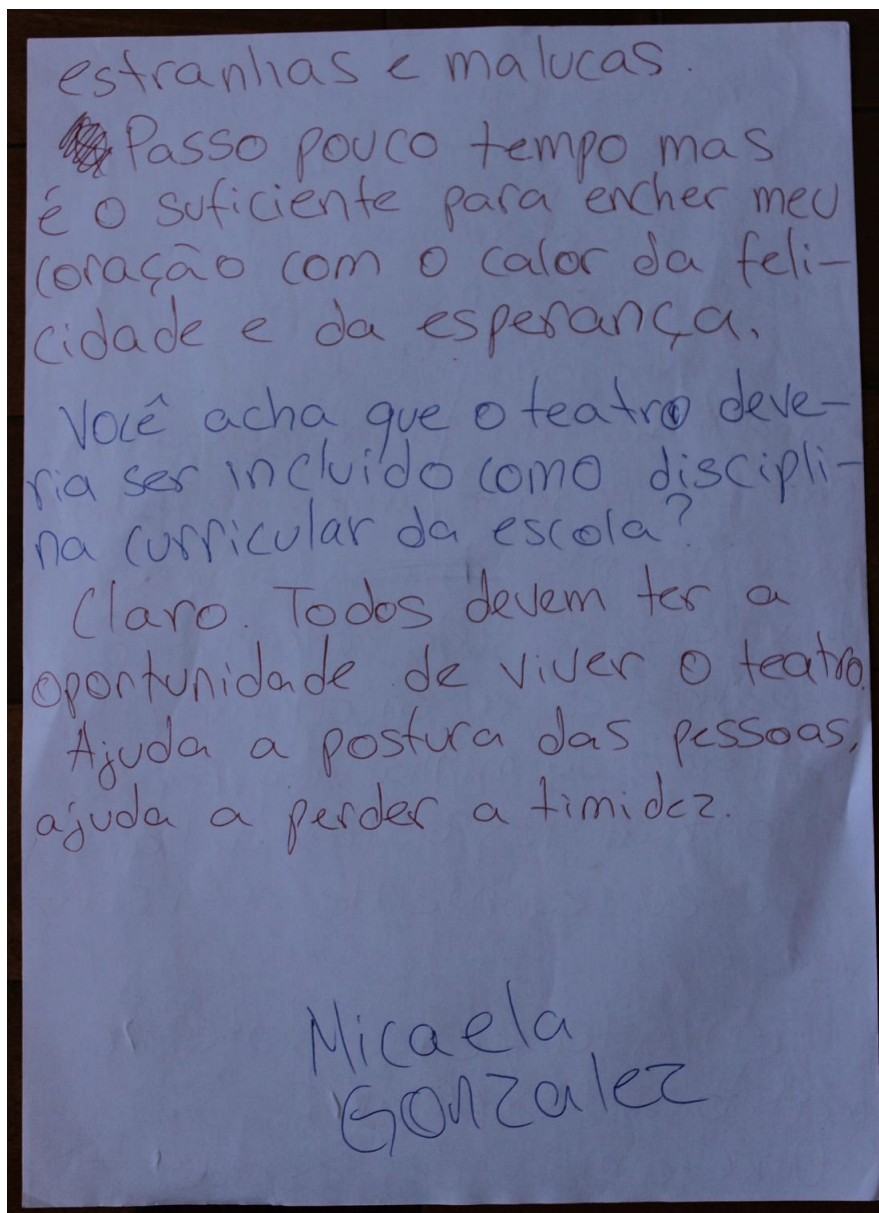 estranhas e malucas.
Passo pouco tempo mas
é o suficiente para encher meu
coração com o calor da feli-
cidade e da esperança.
Você acha que o teatro deve-
ria ser incluído como discipli-
na curricular da escola?
Claro. Todos devem ter a
oportunidade de viver o teatro.
Ajuda a postura das pessoas,
ajuda a perder a timidez.
Micaela
Gonzalez